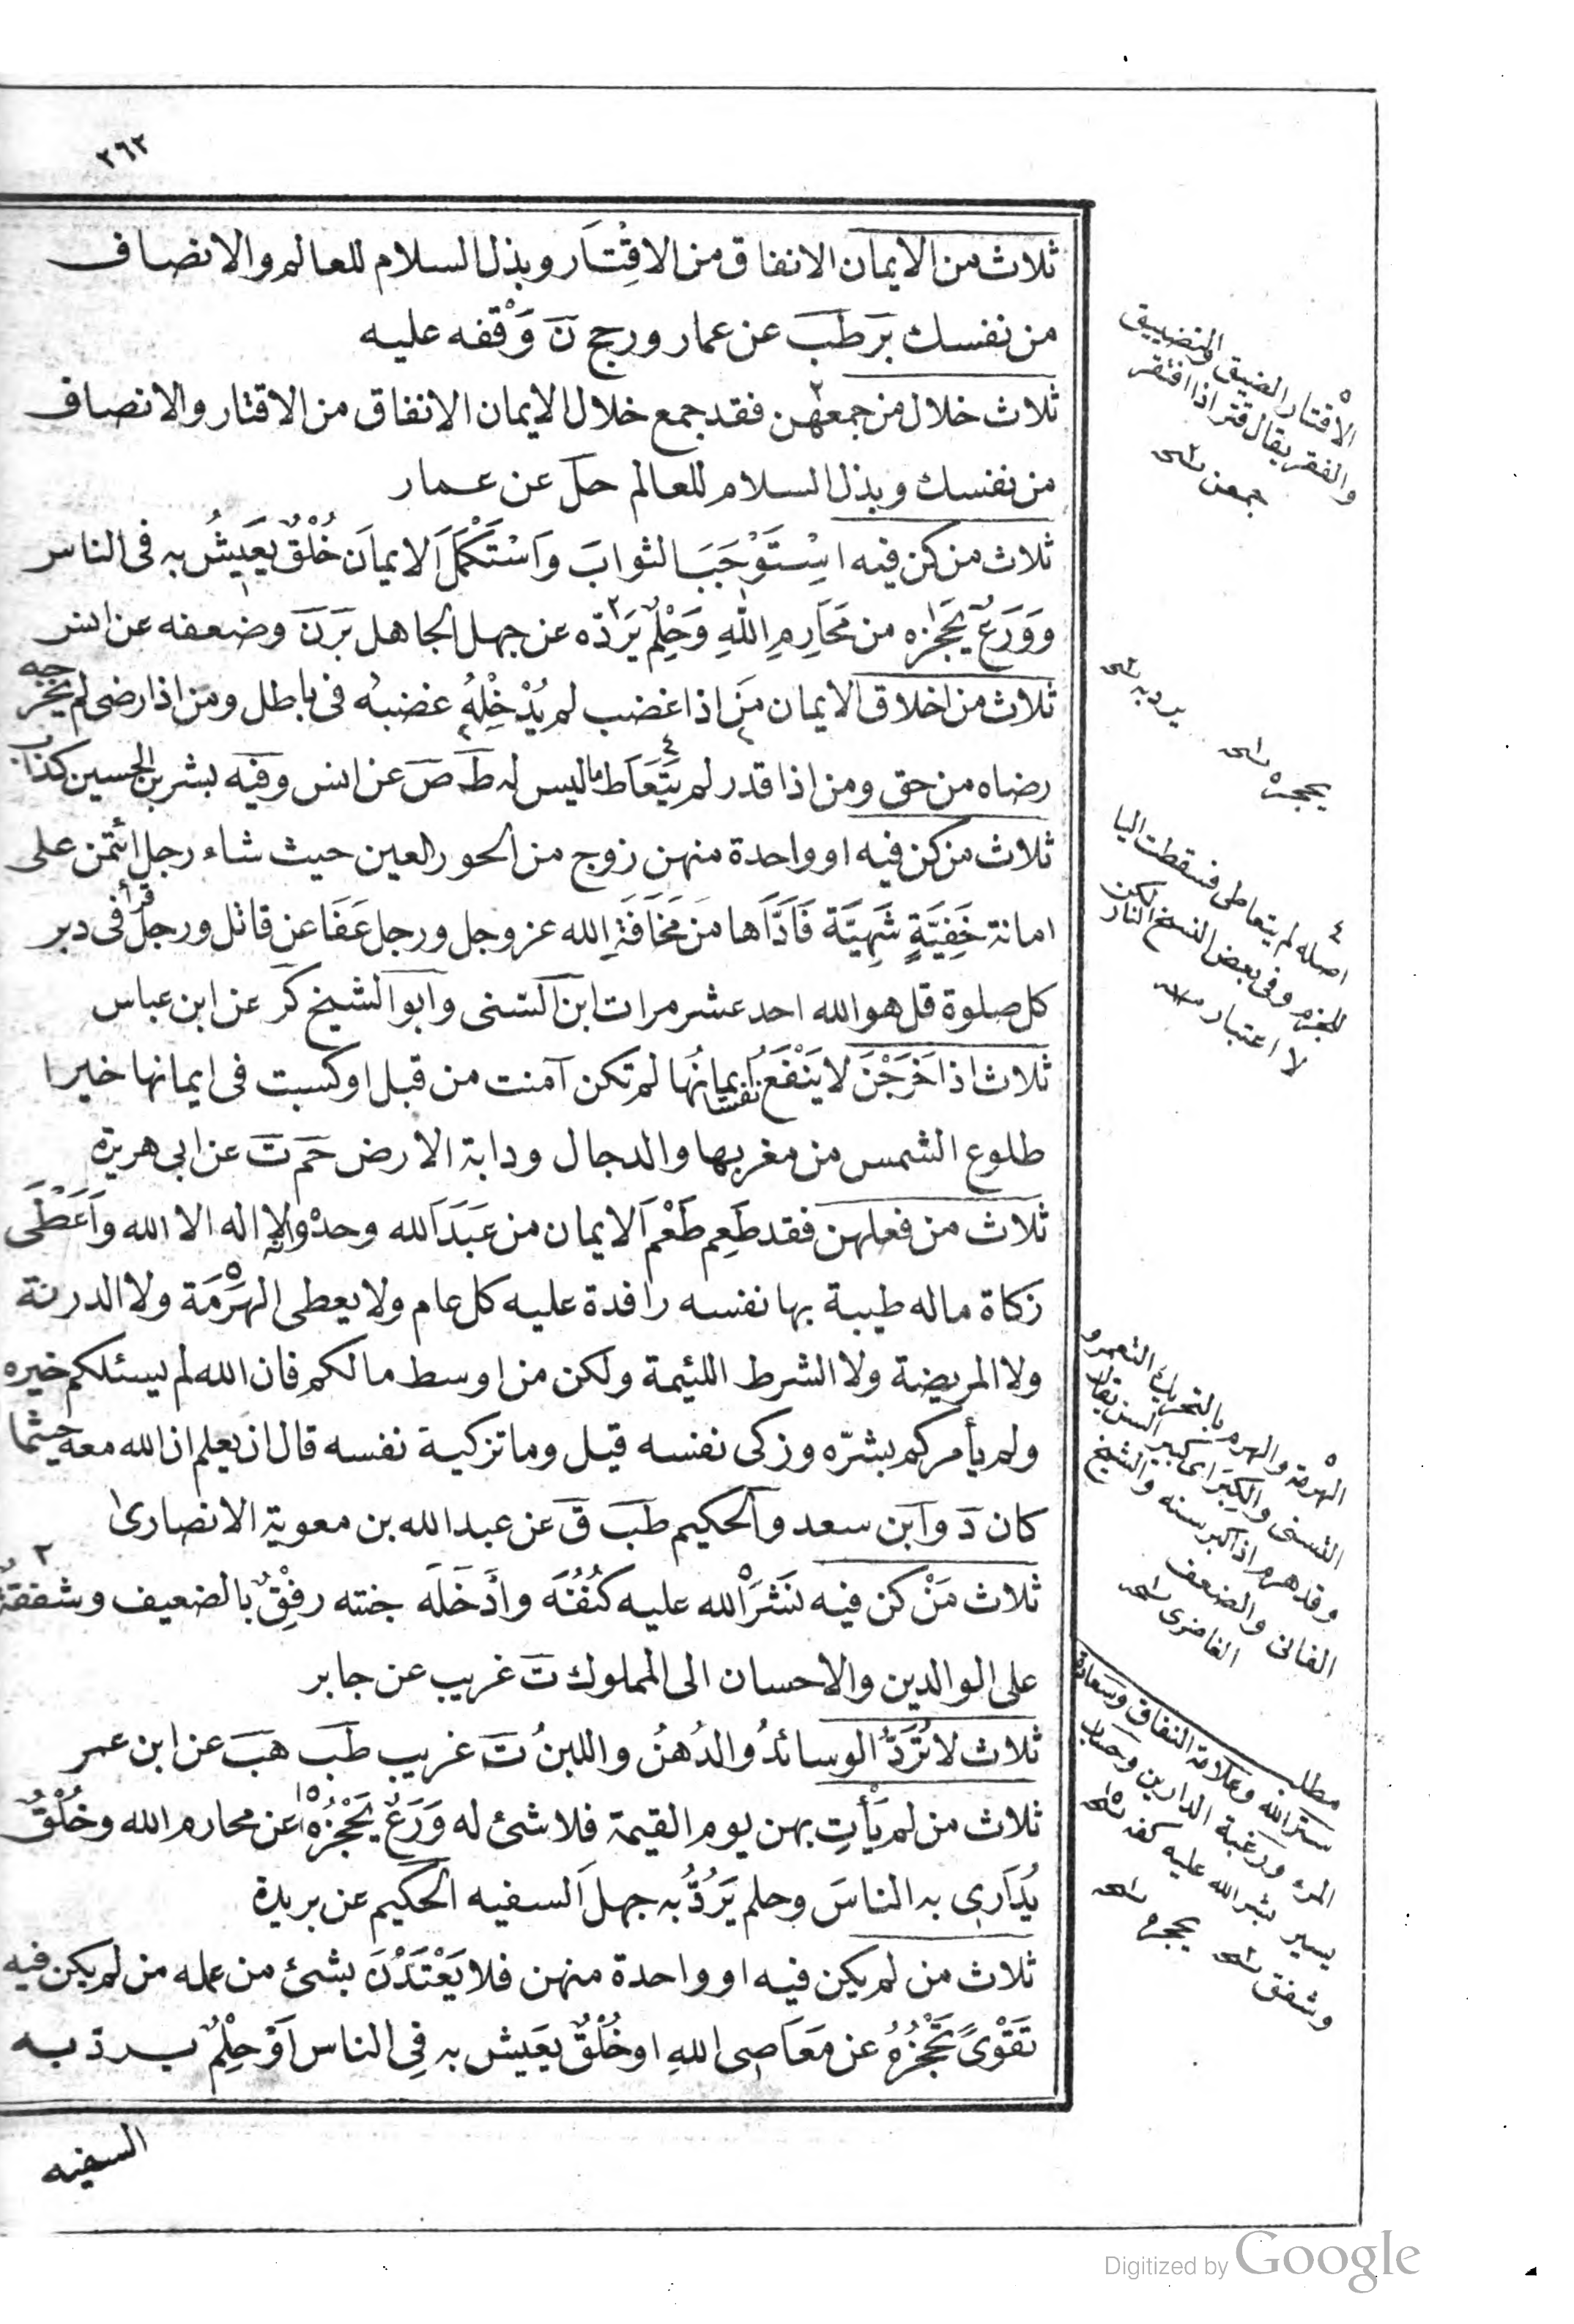 ٢٦٢
ثلاث من الايمان الانفاق من الاقْتَار وبذل السلام للعالم والانصاف
من نفسك بَر طَب عن عمار ورجح نَ وَقْفه عليه
ثلاث خلال من جمعهن فقد جمع خلال الايمان الانفاق من الاقتار والانصاف
من نفسك وبذل السلام للعالم حل عن عمار
ثلاث من كن فيه اسْتَوْجَبَ الثوابَ وَاسْتَكْمَلَ الايمانَ خُلُقٌ يَعِيشُ به فى الناس
وَوَرَعٌ يَحْجُزه من مَحَارِمِ اللهِ وَحِلْمٌ يَرَدّه عن جهل الجاهل بَرَنَ وضعفه عن انس
ثلاث من اخلاق الايمان مَن اذا غضب لم يُدْخِلْهُ غضبُه فى باطل ومن اذا رضى لم يخرجه
رضاه من حق ومن اذا قدر لم يَتَعَاط ما ليس له طَ صَ عن انس وفيه بشر بن الحسين كذاب
ثلاث من كن فيه او واحدة منهن زوج من الحور العين حيث شاء رجل ائتمن على
امانة خَفِيَّةٍ شَهِيَّة فَاَدَّاها مَن مَخَافَةِ الله عز وجل ورجل عَفَا عن قاتل ورجل قرأ فى دبر
كل صلوة قل هو الله احد عشر مرات ابن السنى وابو الشيخ كر عن ابن عباس
ثلاث اذا خَرَجْنَ لا يَنْفَعُ نفسا ايمانُها لم تكن آمنت من قبل او كسبت فى ايمانها خيرا
طلوع الشمس من مغربها والدجال ودابة الارض حَم تَ عن ابى هريرة
ثلاث من فعلهن فقد طَعِم طَعْمَ الايمان من عَبَدَ الله وحده وانه لا اله الا الله وَاَعْطَى
زكاة ماله طيبة بها نفسه رافدة عليه كل عام ولا يعطى الهَرِمَة ولا الدرنة
ولا المريضة ولا الشرط اللئيمة ولكن من اوسط مالكم فان الله لم يسئلكم خيره
ولم يأمركم بشرّه وزكى نفسه قيل وما تزكية نفسه قال ان يعلم ان الله معه حيثما
كان دَ وابن سعد والحكيم طَب قَ عن عبد الله بن معوية الانصارى
ثلاث مَنْ كن فيه نَشَرَ الله عليه كُنُفَه وأدَخَلَه جنته رفِقٌ بالضعيف وشفقة
على الوالدين والاحسان الى المملوك تَ غريب عن جابر
ثلاث لا تُرَدُّ الوسائدُ والدُهنُ واللبنُ تَ غريب طَب هَب عن ابن عمر
ثلاث من لم يَأتِ بهن يوم القيمة فلا شئ له وَرَعٌ يَحْجُزُه عن محارم الله وخُلُقٌ
يُدَارِى به الناسَ وحلم يَرُدُّ به جهلَ السفيه الحكيم عن بريدة
ثلاث من لم يكن فيه او واحدة منهن فلا يَعْتَدَّنَ بشئ من عمله من لم يكن فيه
تَقْوىً تَحْجُزُهُ عن مَعَاصِى اللهِ او خُلُقٌ يَعيش به فِى الناس اَوْ حِلْمٌ يرد به
السفيه
الاقتار الضيق والتضييق
والفقر يقال قتر اذا افتقر
جمعن نسخه
يرد به نسخه
يحجزه نسخه
٤ اصله لم يتعاطى فسقطت اليا
للجزم وفى بعض النسخ لكن النار
لا اعتبار منه
الهرمة والهرم بالتحريك التعمر و
النسنى والكبر اى كبير السن يقال
وقد هرم اذا كبر سنه والشيخ
الفانى والضعف
مطلب
ستر الله وعلامة النفاق وسعادة
المرء ورغبة الدارين وحساب
يسير ينشر الله عليه كنفه نسخه
وشفق نسخه يحجزه نسخه
Digitized by Google